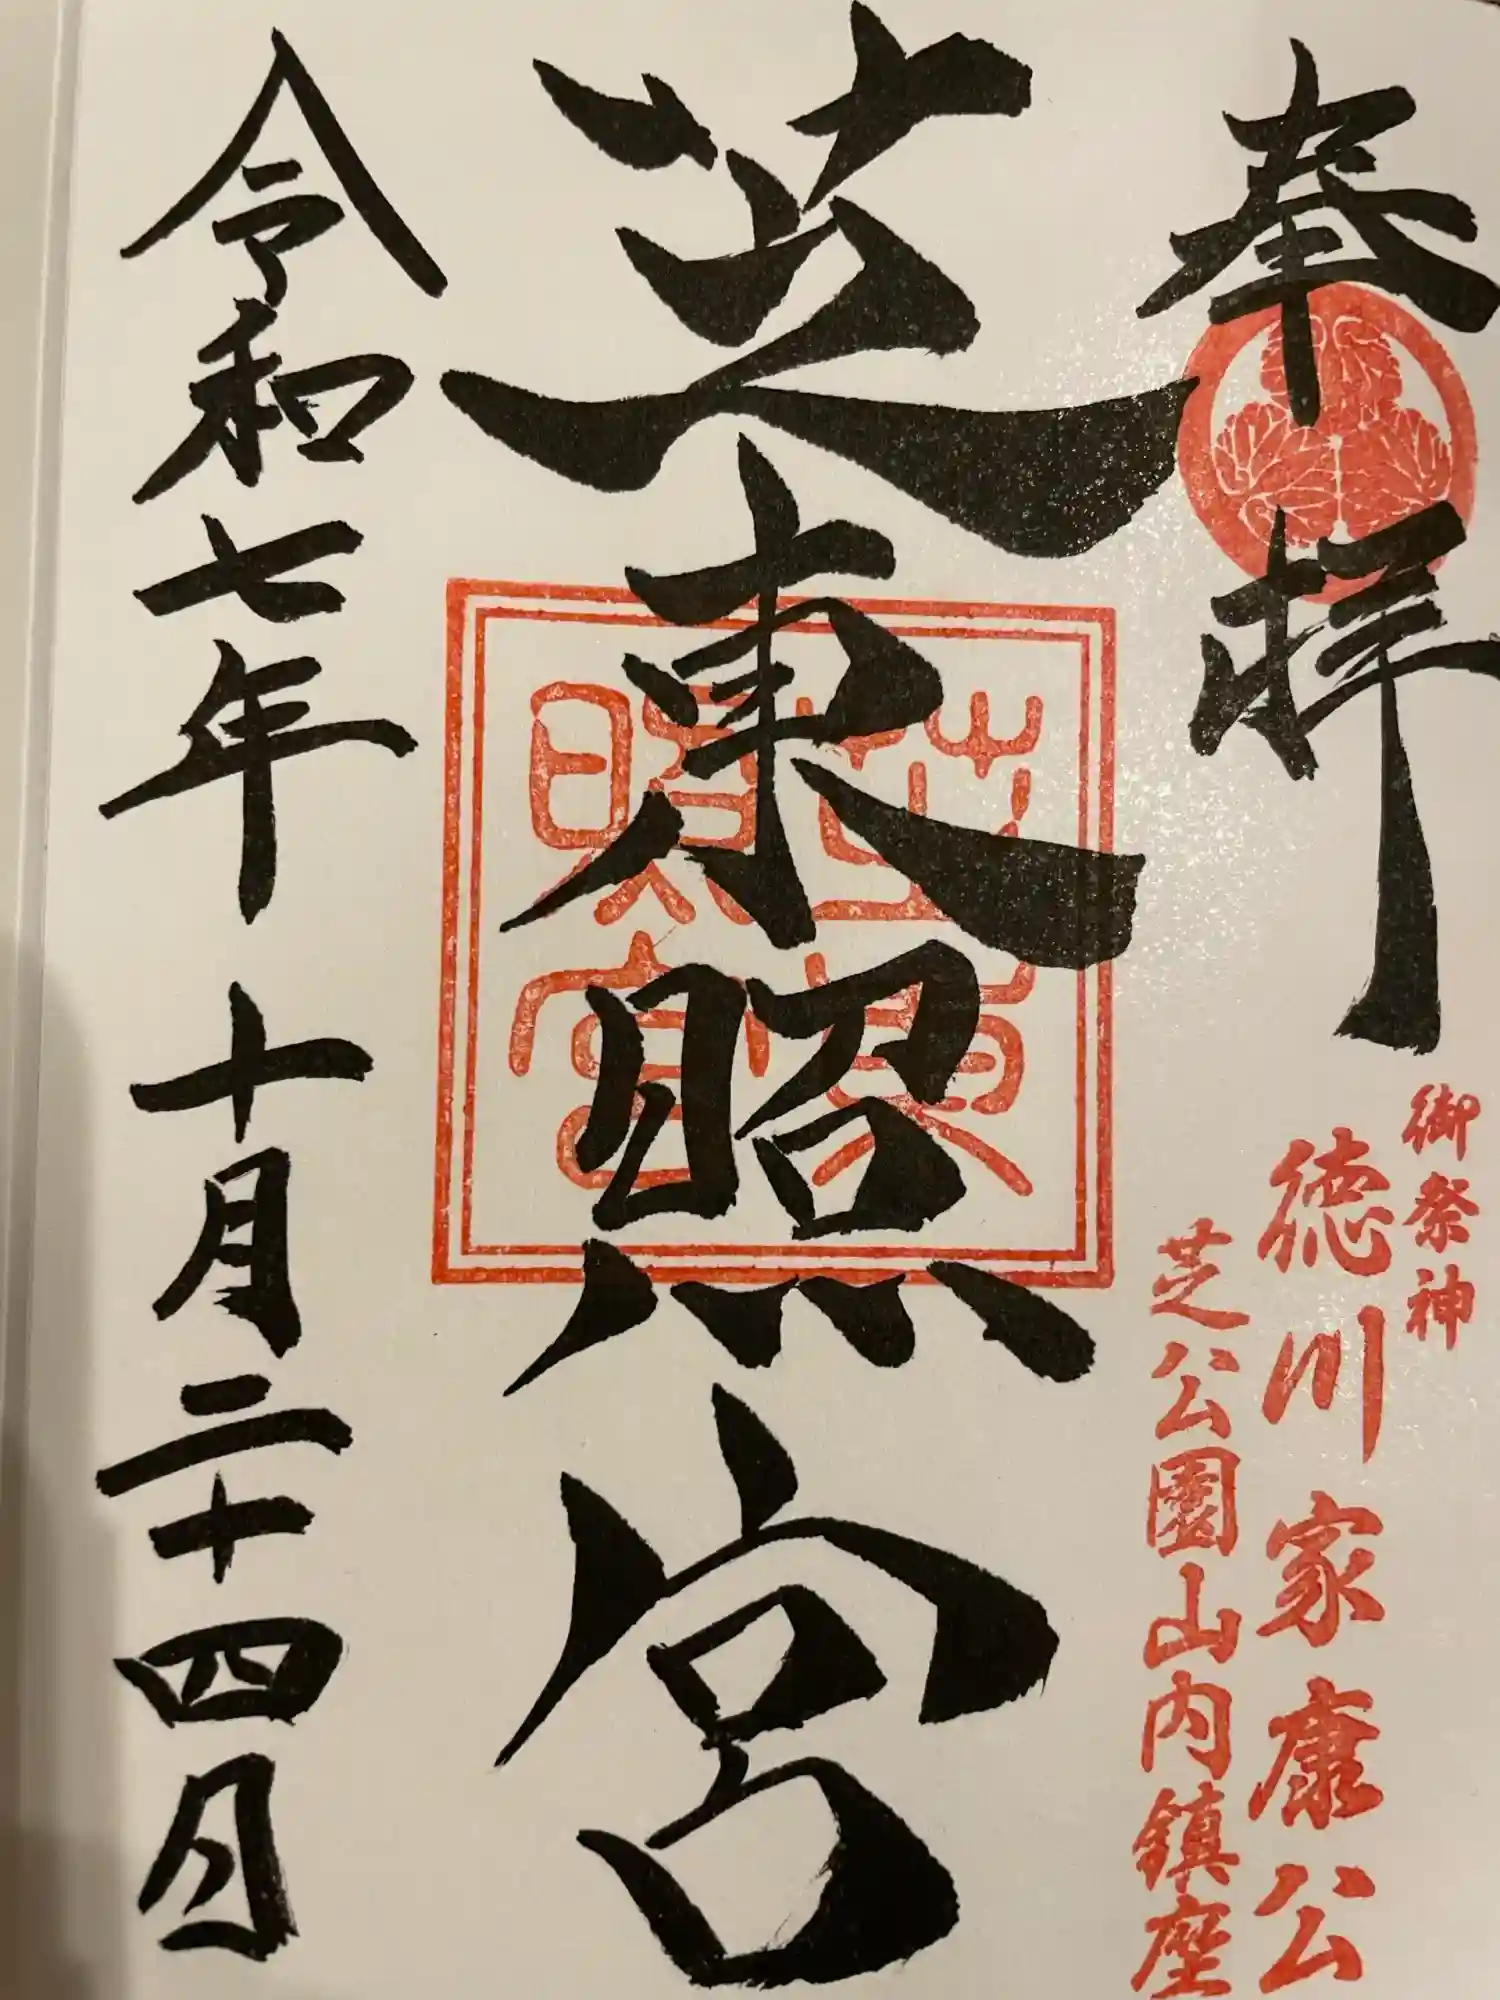 奉拝
御祭神
徳川家康公
芝公園山内鎮座
芝東照宮
芝東照宮
令和七年十月二十四日